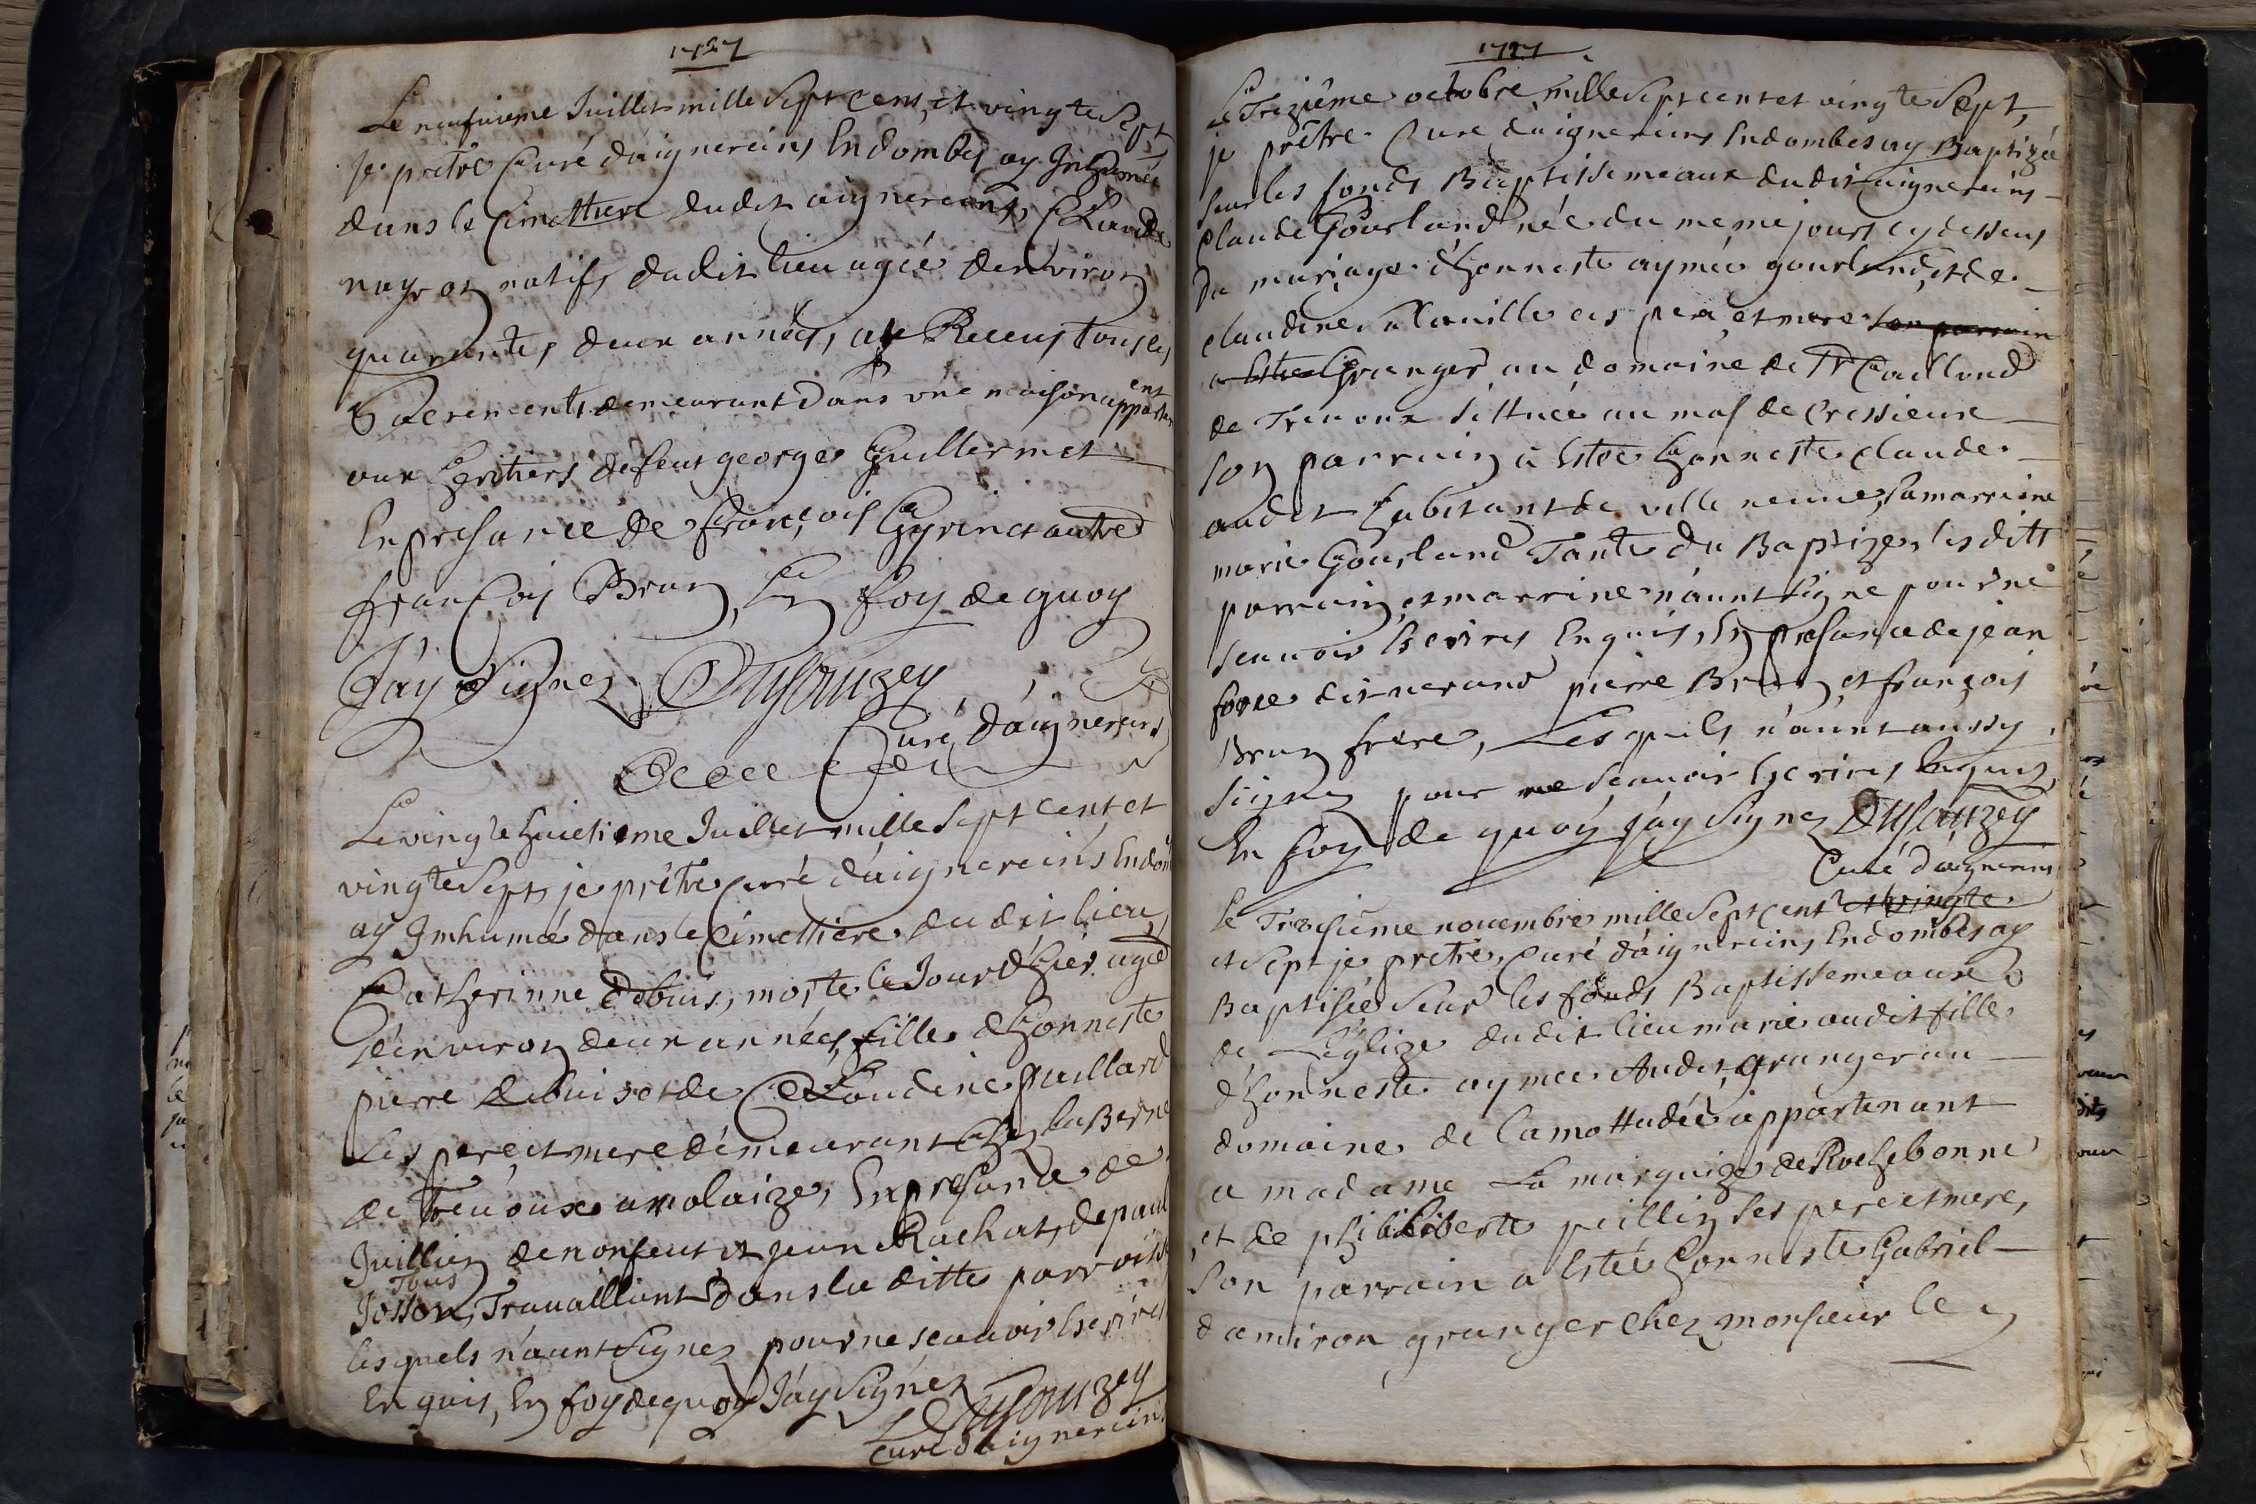 1727
Le neufvieme Juillet mille Sept cens, et vingte Sept,
je prétre Curé daignereins En dombes ay Inhumé
dans le Cimettiere dudit aignereins, Claude
nayrot natifs dudit lieu agée denviron
quarantes deux années, ay Receus tous les
Sacrements demeurant dans une maison appartenent
aux heritiers de feut george Guillermet
En presance de françois Gyrinet autre
françois Brun, En foy de quoy
J'ay Signez Dusauzey
Curé d'aignereins
Le vingte huictieme Juillet mille Sept cent et
vingte Sept, je prétre Curé d'aignereins En dom
ay Imhumé dans le Cimettiere du dit lieu,
Catherinne Debuis, morte le Jour d'hier agée
d'environ deux années, fille d'honneste
pierre debuis et de Claudine paillard
Les pere et mere demeurant chez la Berne
de Treuoux a violaize, En presance de
Juillien de nonfeut et jean Rachat, de paul
Tous
Josson, Travaillant dans la ditte parroisse
lesquels n'aunt Signez pour ne scauoir Escrires
En quis, En foy de quoy J'ay Signéz
Dusauzey
Curé d'aignereins
1727
Le Trezieme octobre, mille Sept cent et vingte Sept,
je prétre Cure d'aignereins En dombes ay Baptizée
seur les fonds Baptissemeaux dudit aignereins
claude Gourland née du meme jours cy dessus
Du mariage d'honneste aymée gourland, et de
claudine ses pere et mere son parrain
a Estée Granger au domaine de Mr Caillend
de Treuoux Sittuée au mas de Cressieux
Son parrain a Estée honneste claude
audet habitant de ville neuve, sa marraine
marie Gourland Tante du Baptizé, les ditts
parrain, et marrine n'aunt Signe pour ne
scauoir Escrires En quis, En presance de jean
forre dit nerand pierre Brun et françois
Brun frere, Lesquels n'aunt aussy
Signez pour ne Scauoir Escrires Enquis,
En foy de quoy j'ay Signez Dusauzey
Curé d'aignereins
Le Troisieme nouembre mille Sept cent et vingte
et Sept je pretre, Curé d'aignereins En dombes ay
Baptisée Seur les fonds Baptissemeaux
de L'églize dudit lieu marie audet fille
d'honneste aymée Audet, granger au
domaine de Lamottadée appartenant
a madame La marquize de Rochebonne
et de philiberte peillin ses pere et mere,
Son parrain a Estée honneste Gabriel
damiron granger chez monsieur le